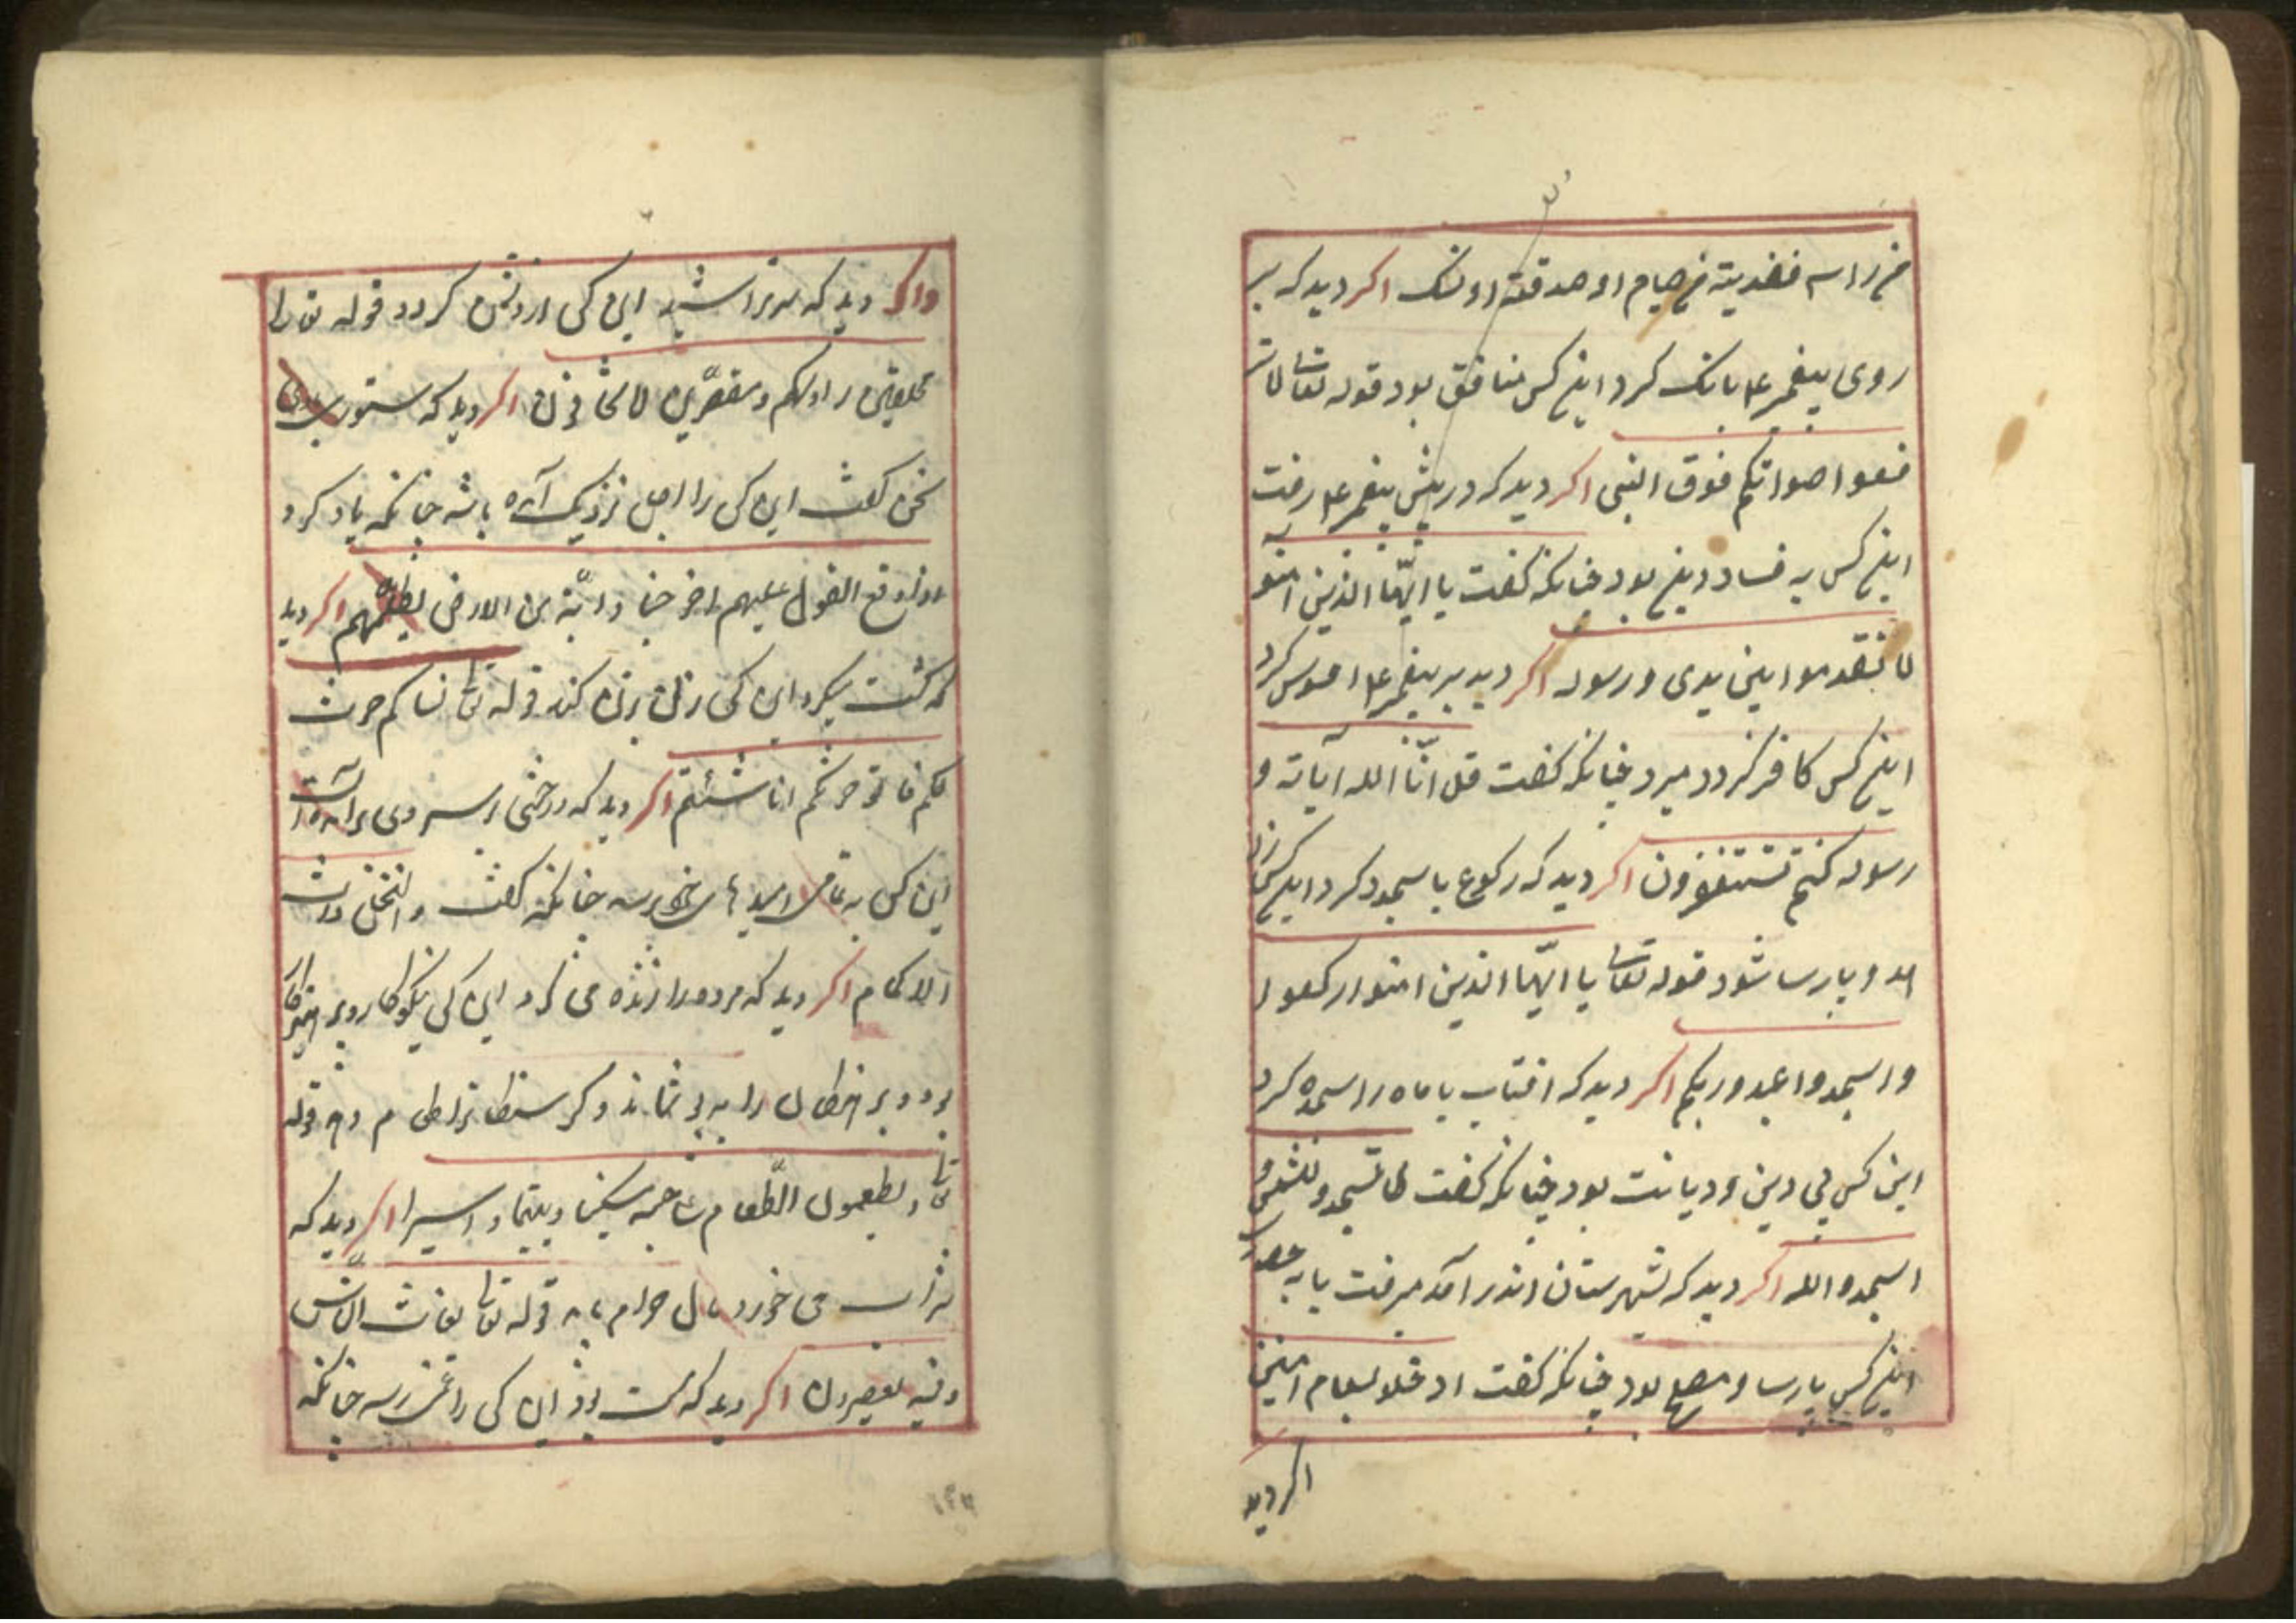 من راسه ففدیة من صیام او صدقة او نسک اکر دید که بر
روی پیغمبر ع بانک کرد این کس منافق بود قوله تعالی لا تر
فعوا صواتکم فوق النبی اکر دید که در پیش پیغمبر ع رفت
این کس به فساد دین بود چنانکه کفت یا ایّها الذین آمنو
لا تقدموا بین یدی و رسوله اکر دید بر پیغمبر ع افسوس کرد
این کس کافر کردد میرد چنانکه کفت قل انّا الله آیاته و
رسوله کنتم تستغفرون اکر دید که رکوع یا سجود کرد این کس
و پارسا شود قوله تعالی یا ایّها الذین امنوا ارکعوا
و اسجدوا عبدو ربکم اکر دید که افتاب یا ماه را سجده کرد
این کس بی دین و دیانت بود چنانکه کفت لا تسجدو للشمس و
اسجدو الله اکر دید که بشهرستان اندر آمد میرفت یا به
این کس پارسا و مصلح بود چنانکه کفت ادخلو بسلام امنین
اکر دید
واکر دید که سر تراشید این کس از دشمن کردد قوله تعالی
محلقین روسکم و مقصّرین لا تخافون اکر دید که ستور
سخن کفت این کس را اجل نزدیک آمده باشد چنانکه یاد کرد
و اذا وقع القول علیهم اخرجنا دابّة من الارض اکر دید
که کشت میکرد این کس زنی بزنی کند قوله تعا نساکم حرث
لکم فاتو حرثکم انا شئتم اکر دید که درختی از سر وی برآمده
این کس به برسد چنانکه کفت و النخل ذات
الاکمام اکر دید که مرده را زنده می کرد این کس نیکوکار و پرهیزکار
بود و
تعا و یطعمون الطّعام علی حبه مسکینا و یتیما و اسیرا اکر دید که
شراب می خورد مال حرام یابد قوله تعالی یغاث النّاس
و فیه یعصرون اکر دید که مست بود این کس را غم رسد چنانکه